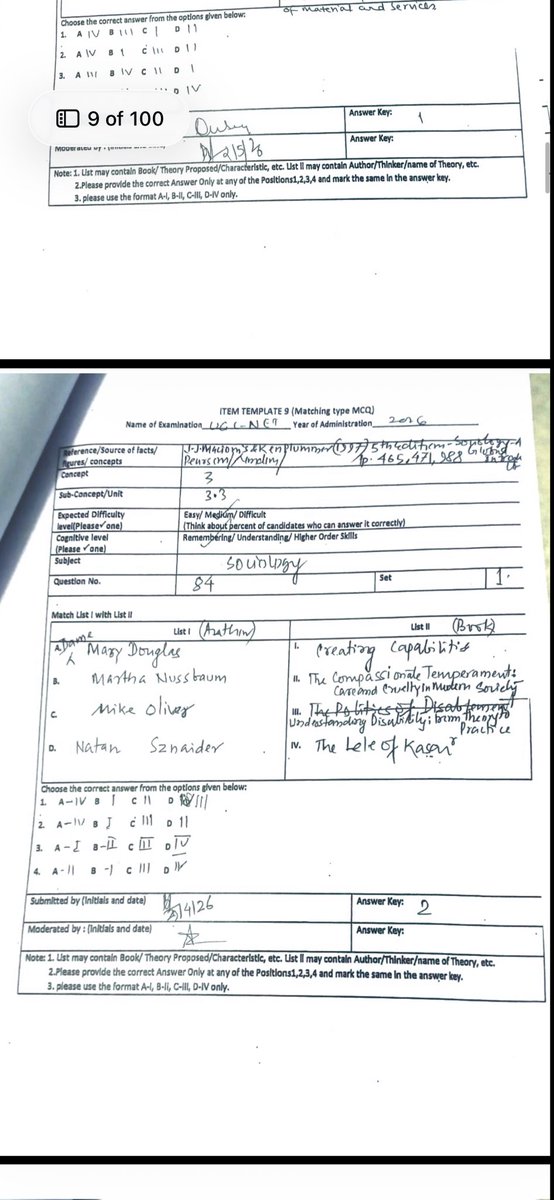 of Material and Services
Choose the correct answer from the options given below:
1. A IV B III C I D II
2. A IV B I C III D II
3. A III B IV C II D I
D IV
9 of 100
Answer Key: 1
Answer Key:
Note: 1. List may contain Book/ Theory Proposed/Characteristic, etc. List II may contain Author/Thinker/name of Theory, etc.
2.Please provide the correct Answer Only at any of the Positions1,2,3,4 and mark the same in the answer key.
3. please use the format A-I, B-II, C-III, D-IV only.
ITEM TEMPLATE 9 (Matching type MCQ)
Name of Examination UGC-NET Year of Administration 2026
Reference/Source of facts/ figures/ concepts J.J. Macionis & Ken Plummer 5th edition - Sociology A Global
Pearson pp. 465, 471, 988
Concept 3
Sub-Concept/Unit 3.3
Expected Difficulty level(Please✓one) Easy/ Medium/ Difficult
(Think about percent of candidates who can answer it correctly)
Cognitive level (Please ✓one) Remembering/ Understanding/ Higher Order Skills
Subject Sociology
Question No. 84 Set 1.
Match List I with List II
List I (Author) List II (Book)
A. Dame Mary Douglas I. Creating Capabilities
B. Martha Nussbaum II. The Compassionate Temperament: Care and Cruelty in Modern Society
C. Mike Oliver III. The Politics of Disablement
Understanding Disability: from Theory to Practice
D. Natan Sznaider IV. The Lele of Kasai
Choose the correct answer from the options given below:
1. A-IV B I C II D III
2. A-IV B I C III D II
3. A-I B-II C III D IV
4. A-II B-I C III D IV
Submitted by (Initials and date) Answer Key: 2
Moderated by : (Initials and date) Answer Key:
Note: 1. List may contain Book/ Theory Proposed/Characteristic, etc. List II may contain Author/Thinker/name of Theory, etc.
2.Please provide the correct Answer Only at any of the Positions1,2,3,4 and mark the same in the answer key.
3. please use the format A-I, B-II, C-III, D-IV only.